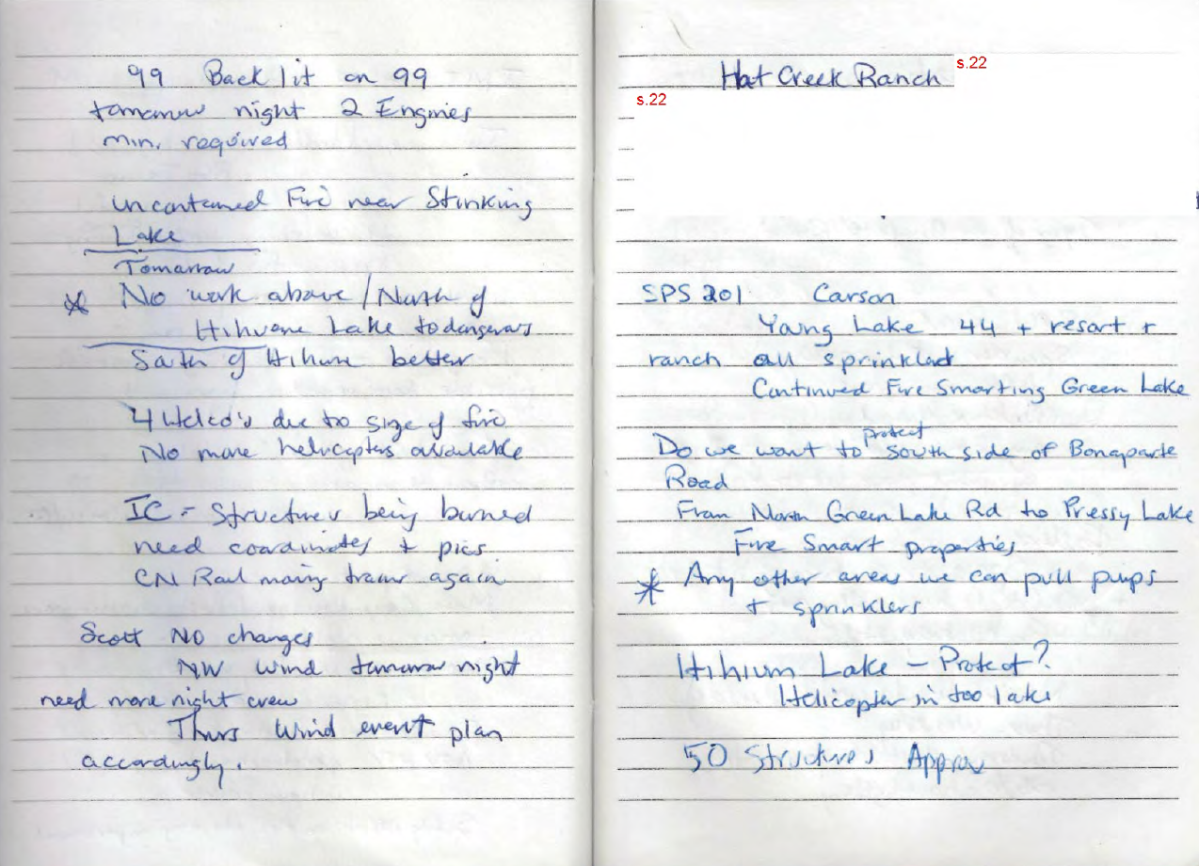 99 Back lit on 99
tomorrow night 2 Engines
min. required
uncontained Fire near Stinking
Lake
Tomorrow
* No work above / North of
Hihuone Lake to dangerous
South of Hihum better
4 Helco's due to size of fire
No more helicopters available
IC - Structures being burned
need coordinates + pics.
CN Rail moving trains again
Scott No changes
NW wind tomorrow night
need more night crew
Thurs Wind event plan
accordingly.
Hat Creek Ranch s.22
s.22
SPS 201 Carson
Young Lake 44 + resort +
ranch all sprinkled
Continued Fire Smarting Green Lake
protect
Do we want to south side of Bonaparte
Road
From North Green Lake Rd to Pressy Lake
Fire Smart properties
* Any other areas we can pull pups
+ sprinklers
Hihium Lake - Protect?
Helicopter in too lake
50 Structures Approx